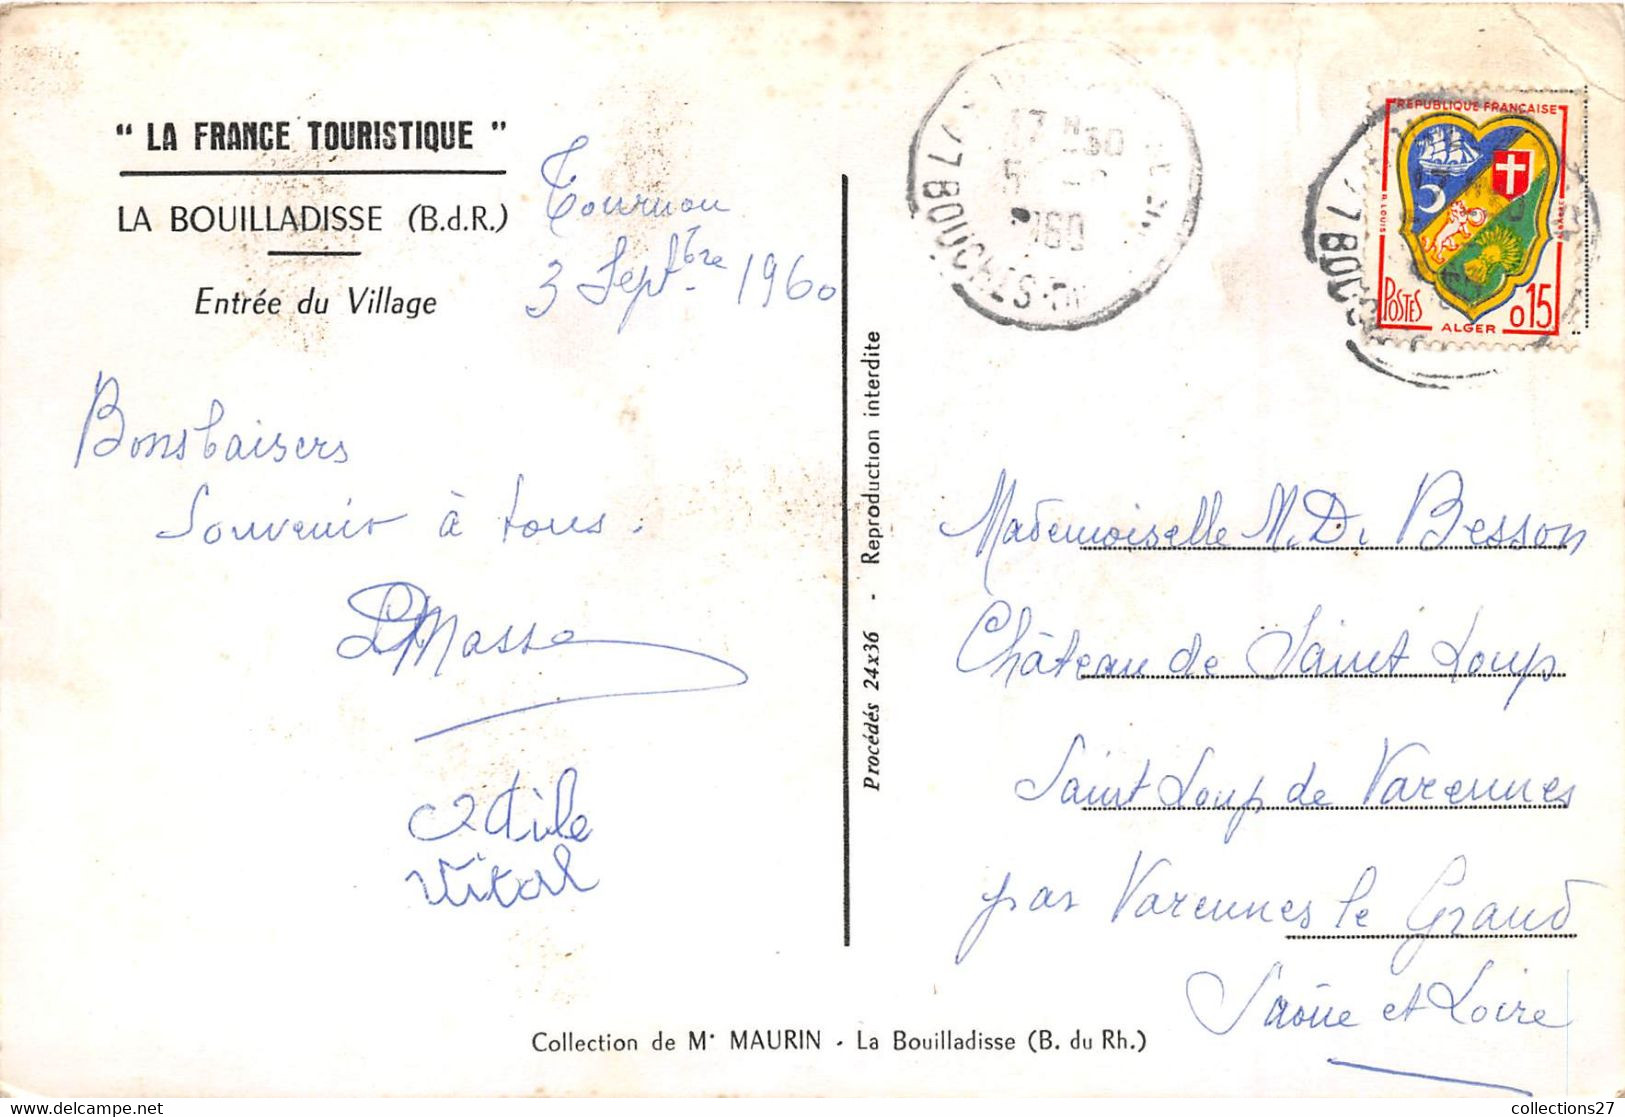 " LA FRANCE TOURISTIQUE "
LA BOUILLADISSE (B.d.R.)
Entrée du Village
Tournon
3 Septbre 1960
Bons baisers
Souvenir à tous.
Masse
Vital
Procédés 24x36 - Reproduction interdite
17 H30
5
1960
BOUCHES-DU
REPUBLIQUE FRANÇAISE
POSTES
ALGER
0,15
Mademoiselle M. D. Besson
Château de Saint Loup
Saint Loup de Varennes
par Varennes le Grand
Saône et Loire
Collection de Mr MAURIN - La Bouilladisse (B. du Rh.)
collections27